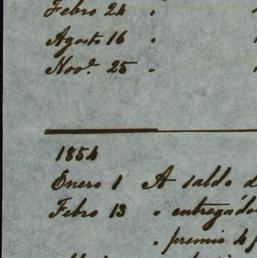 Febro 24 "
Agosto 16 "
Novo. 25 "
1854
Enero 1 A saldo d
Febro 13 " entregádo
" premio de p